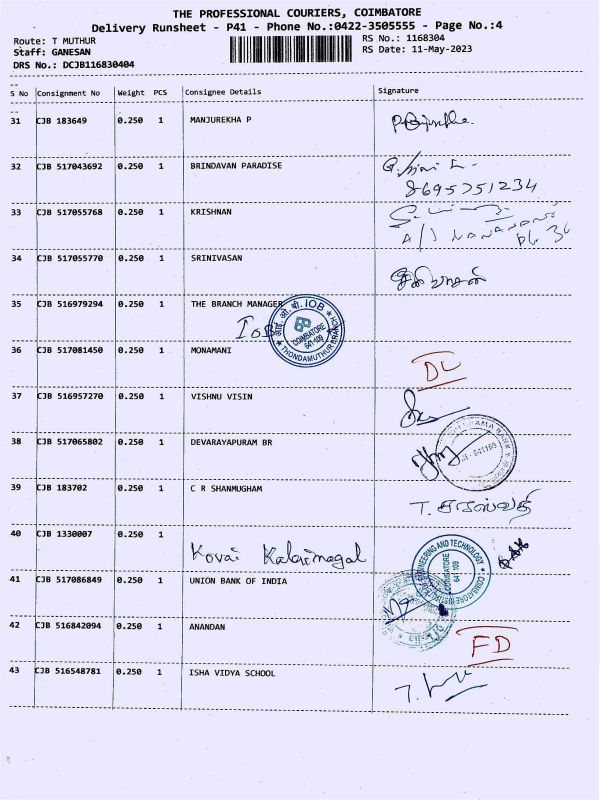 THE PROFESSIONAL COURIERS, COIMBATORE
Delivery Runsheet - P41 - Phone No.:0422-3505555 - Page No.:4
Route: T MUTHUR
RS No.: 1168304
Staff: GANESAN
RS Date: 11-May-2023
DRS No.: DCJB116830404
S No Consignment No Weight PCS Consignee Details Signature
31 CJB 183649 0.250 1 MANJUREKHA P
32 CJB 517043692 0.250 1 BRINDAVAN PARADISE
8695751234
33 CJB 517055768 0.250 1 KRISHNAN
34 CJB 517055770 0.250 1 SRINIVASAN
சீனிவாசன்
35 CJB 516979294 0.250 1 THE BRANCH MANAGER
IOB
आई. ओ. बी. IOB
COIMBATORE
641-109
THONDAMUTHUR BRANCH
36 CJB 517081450 0.250 1 MONAMANI
DL
37 CJB 516957270 0.250 1 VISHNU VISIN
38 CJB 517065802 0.250 1 DEVARAYAPURAM BR
641109
39 CJB 183702 0.250 1 C R SHANMUGHAM
T. சரஸ்வதி
40 CJB 1330007 0.250 1
Kovai Kalaimagal
ENGINEERING AND TECHNOLOGY
COIMBATORE
641 109
41 CJB 517086849 0.250 1 UNION BANK OF INDIA
42 CJB 516842094 0.250 1 ANANDAN
FD
43 CJB 516548781 0.250 1 ISHA VIDYA SCHOOL